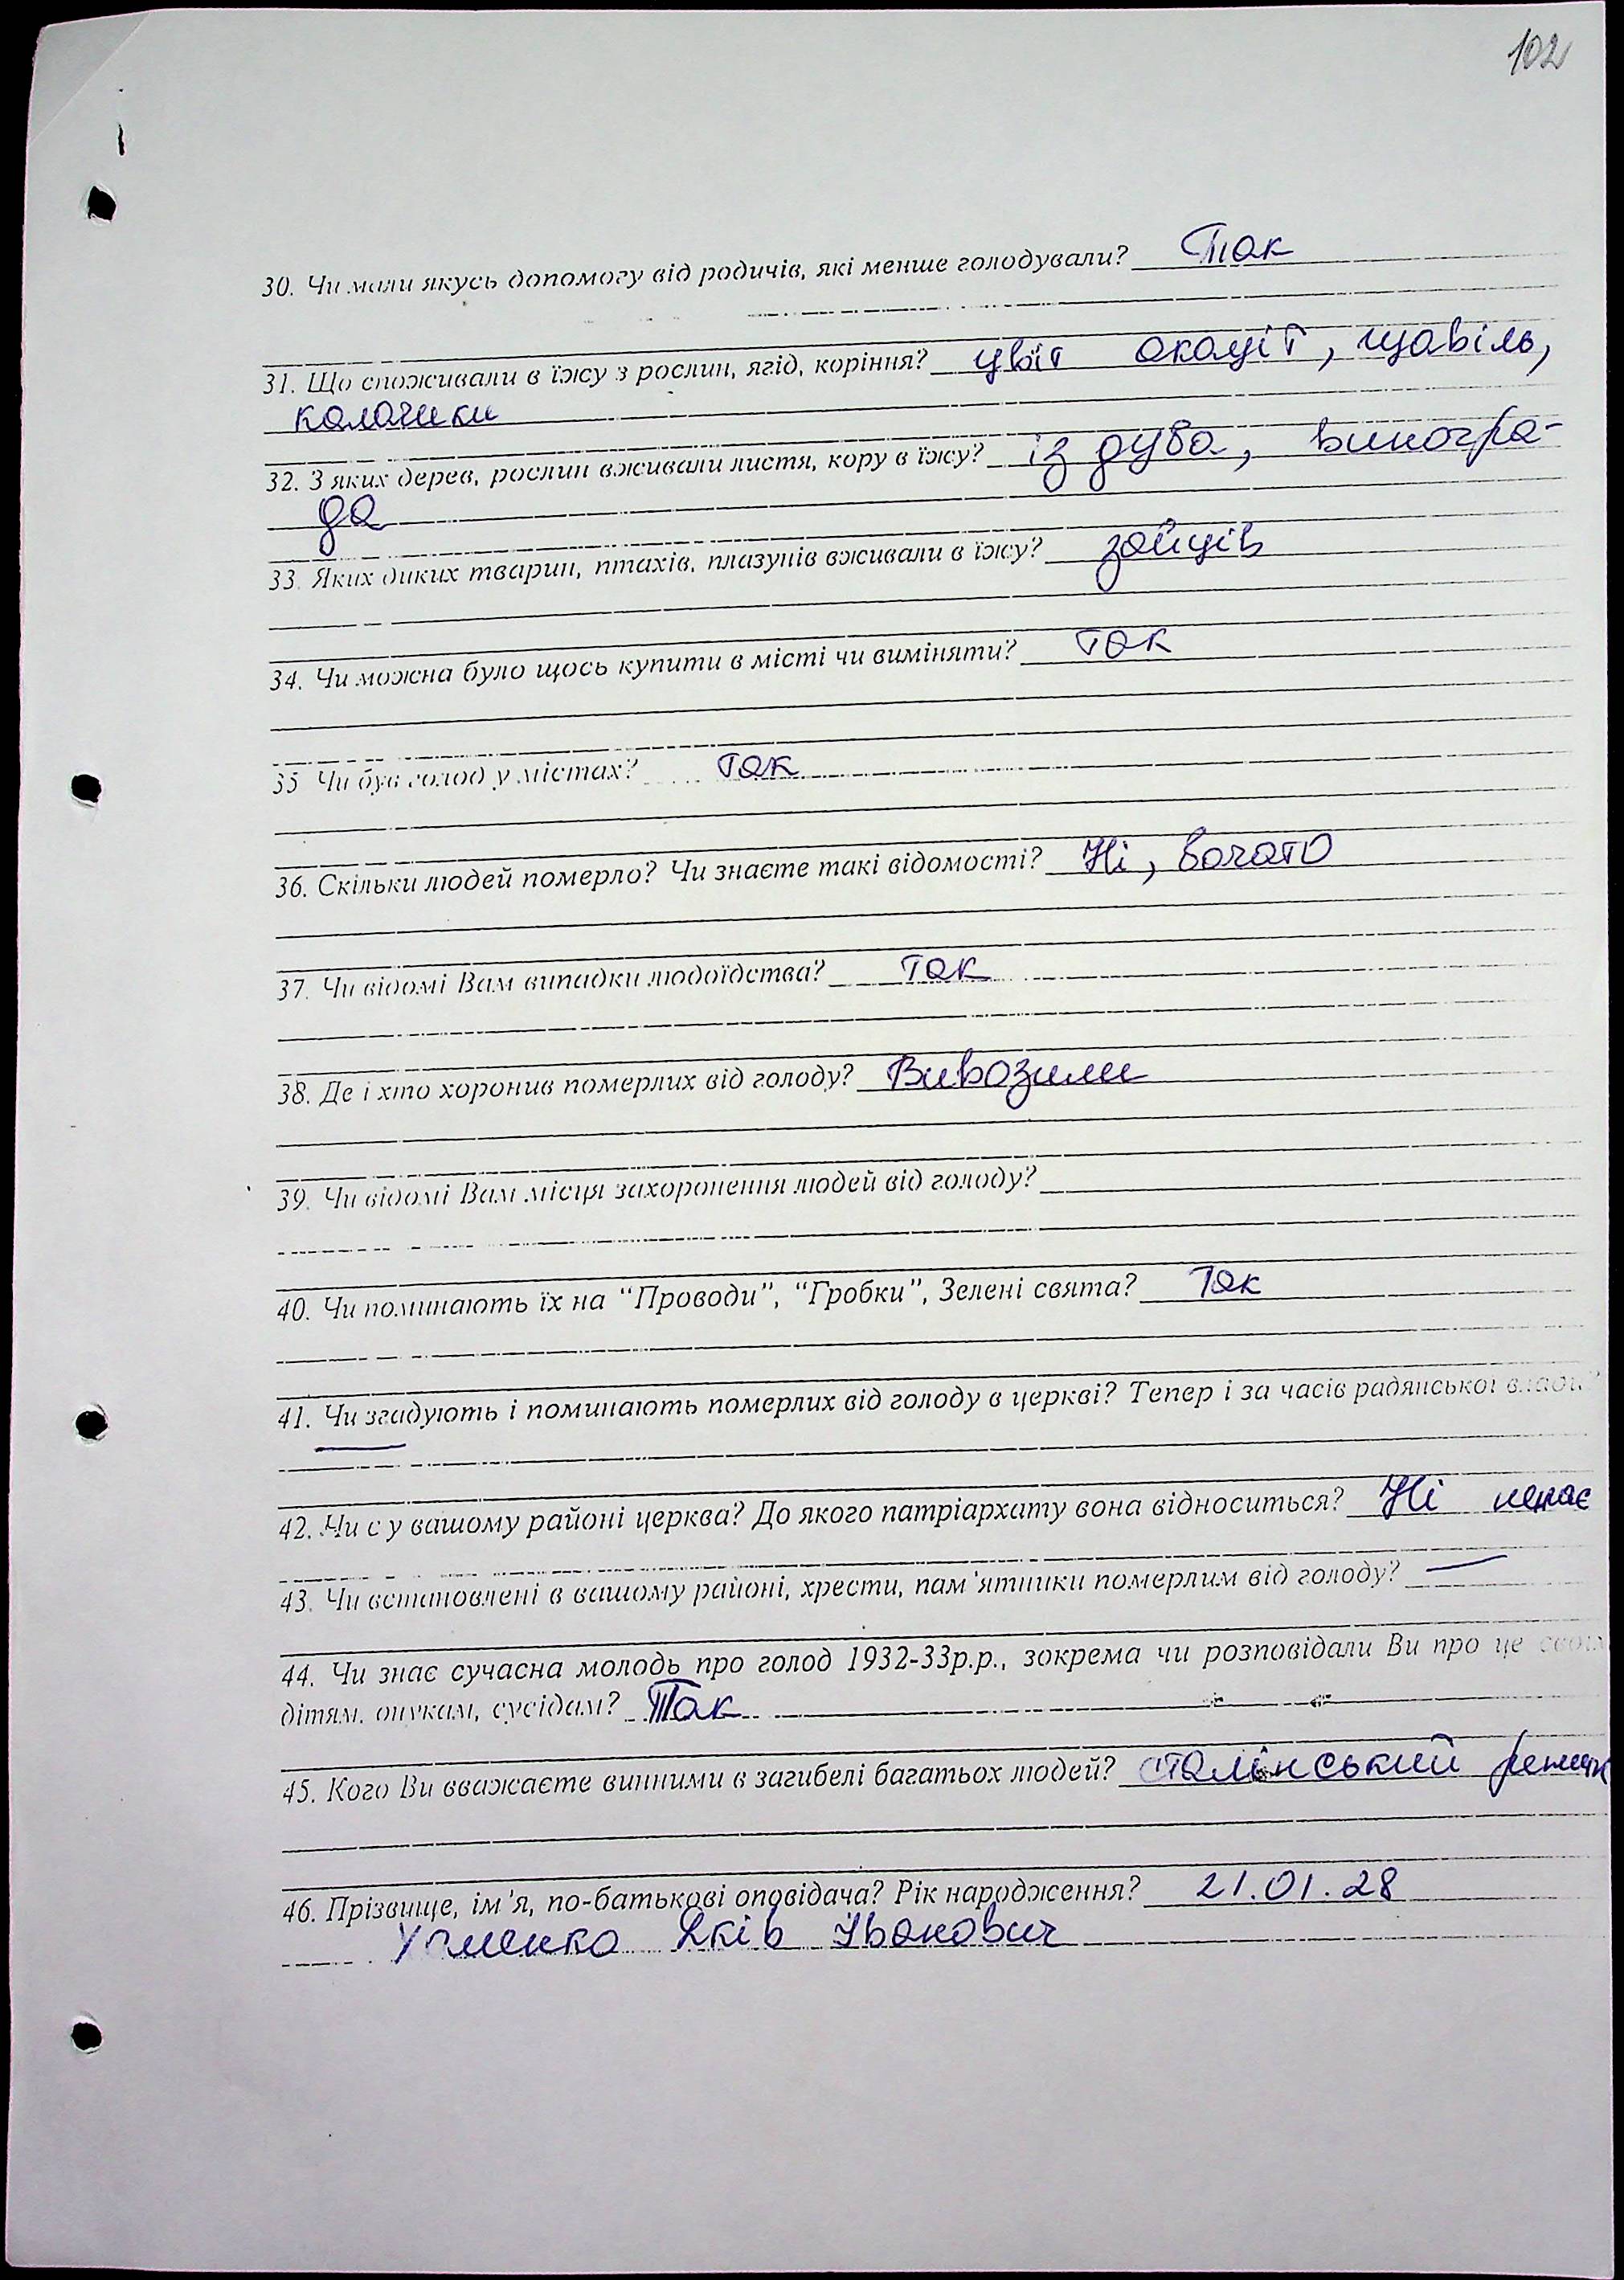 102
30. Чи мали якусь допомогу від родичів, які менше голодували? Так
31. Що споживали в їжу з рослин, ягід, коріння? цвіт акації, щавіль,
калачики
32. З яких дерев, рослин вживали листя, кору в їжу? із дуба, виногра-
да
33. Яких диких тварин, птахів, плазунів вживали в їжу? зайців
34. Чи можна було щось купити в місті чи виміняти? так
35 Чи був голод у містах? так
36. Скільки людей померло? Чи знаєте такі відомості? Ні, богато
37. Чи відомі Вам випадки людоїдства? так
38. Де і хто хоронив померлих від голоду? Вивозили
39. Чи відомі Вам місця захоронення людей від голоду?
40. Чи поминають їх на “Проводи”, “Гробки”, Зелені свята? Так
41. Чи згадують і поминають померлих від голоду в церкві? Тепер і за часів радянської влади?
42. Чи є у вашому районі церква? До якого патріархату вона відноситься? Ні немає
43. Чи встановлені в вашому районі, хрести, пам'ятники померлим від голоду? —
44. Чи знає сучасна молодь про голод 1932-33р.р., зокрема чи розповідали Ви про це своїм
дітям, онукам, сусідам? Так
45. Кого Ви вважаєте винними в загибелі багатьох людей? сталінський режим
46. Прізвище, ім'я, по-батькові оповідача? Рік народження? 21.01.28
Яків Іванович